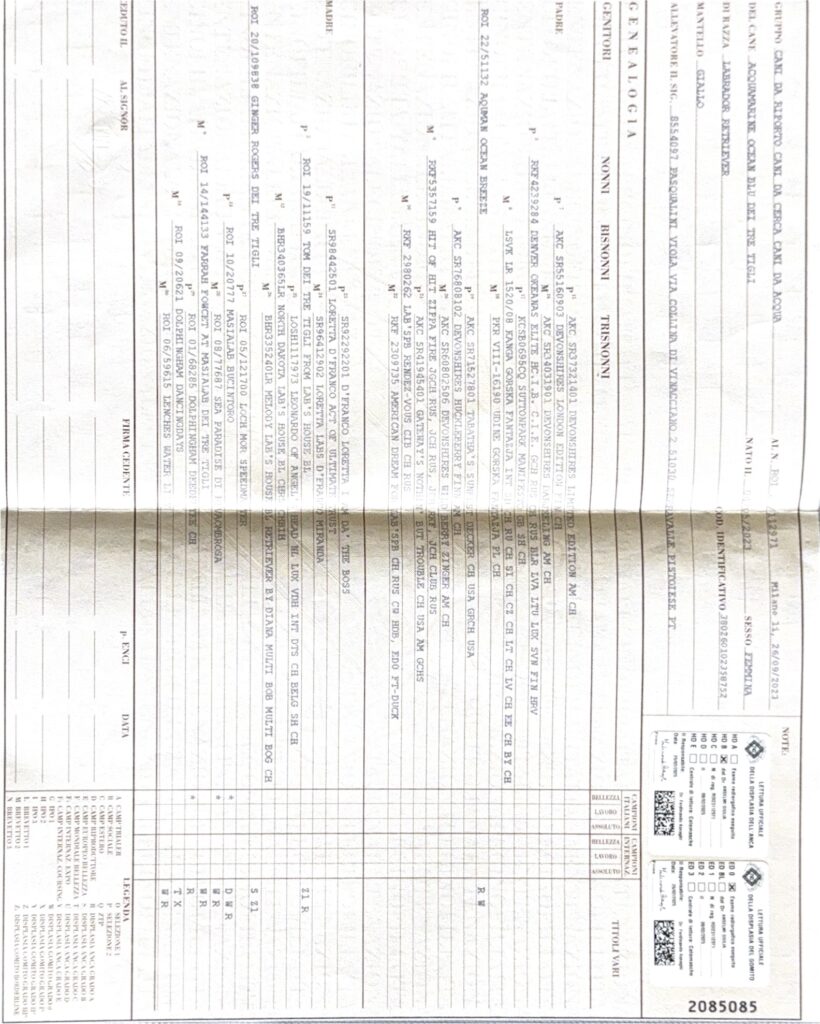 GRUPPO CANI DA RIPORTO CANI DA CERCA CANI DA ACQUA
AL N. ROI /112971 Milano li, 26/09/2023
DEL CANE ACQUAMARINE OCEAN BLU DEI TRE TIGLI
NATO IL /2023 SESSO FEMMINA
DI RAZZA LABRADOR RETRIEVER
COD. IDENTIFICATIVO 380260102358752
MANTELLO GIALLO
ALLEVATORE IL SIG. 8554097 PASQUALINI VIOLA VIA COLLINA DI VINACCIANO 2 51030 SERRAVALLE PISTOIESE PT
NOTE:
LETTURA UFFICIALE
DELLA DISPLASIA DELL'ANCA
HD A
HD B
HD C
HD D
HD E
Esame radiografico eseguito
Centrale di lettura
Il Responsabile
Data
LETTURA UFFICIALE
DELLA DISPLASIA DEL GOMITO
ED 0
ED BL
ED 1
ED 2
ED 3
Esame radiografico eseguito
Centrale di lettura
Il Responsabile
Data
2085085
GENEALOGIA
GENITORI NONNI BISNONNI TRISNONNI
CAMPIONI ITALIANI CAMPIONI INTERNAZ. TITOLI VARI
BELLEZZA LAVORO ASSOLUTO BELLEZZA LAVORO ASSOLUTO
P AKC SR37321401 DEVONSHIRES LIMITED EDITION AM CH
P AKC SR55160903 DEVONSHIRES LONDON EDITION CH
M AKC SR34031901 DEVONSHIRES DARLING AM CH
P RKF4239284 DENVER OKEANAS ELITE HC.I.B. C.I.E. GCH RUS CH RUS BLR LVA LTU LUX SVN FIN HRV
P KCSB0695CQ SUTTONPARK GB SH CH
M LSVK LR 1520/08 KANGA GORSKA FANTAZJA INT CH RU CH SI CH CZ CH LT CH LV CH EE CH BY CH
M PKR VIII-16190 UDINE GORSKA FANTAZJA PL CH
PADRE ROI 22/51132 AQUMAN OCEAN BREEZE R W
P AKC SR71527801 TABATHA'S DECKER CH USA GRCH USA
P AKC SR76808102 DEVONSHIRES HUCKLEBERRY FINN AM CH
M AKC SR60802506 DEVONSHIRES ZINGER AM CH
M RKF5357159 HIT OF HIT ZIPPA FIRE JGCH RUS, JCH RUS, JCH CLUB RUS
P AKC SR41945401 GATEWAY'S NOTHIN' BUT TROUBLE CH USA AM GCHS
M RKF 2980262 LAB'SPB RENDEZ-VOUS CIB CH RUS
M RKF 2309735 AMERICAN DREAM LAB'SPB CH RUS CW HDB, ED0 FT-DUCK
P SR92292201 D'FRANCO LORETTA I DA' THE BOSS
P SR98442501 LORETTA D'FRANCO ACT OF ULTIMATE TRUST
M SR96412902 LORETTA LABS D'FRANCO MIRANDA
P ROI 19/11159 TOM DEI TRE TIGLI FROM LAB'S HOUSE BL Z1 R
P LOSH1117973 LEONARDO OF ANGEL HEAD NL LUX VDH INT DTS CH BELG SH CH
M BHR340365LR NORTH DAKOTA LAB'S HOUSE BL
M BHR335240LR MELODY LAB'S HOUSE BL RETRIEVER BY DIANA MULTI BOB MULTI BOG CH
MADRE ROI 20/109838 GINGER ROGERS DEI TRE TIGLI S Z1
P ROI 05/121700 LOCH MOR SPEEDMASTER * D W R
P ROI 10/20777 MASIALAB BUCINTORO * W R
M ROI 08/77687 SEA PARADISE DI VALLOMBROSA
M ROI 14/144133 FARRAH FOWCET AT MASIALAB DEI TRE TIGLI W R
P ROI 01/68285 DOLPHINGHAM CH * R
M ROI 09/20621 DOLPHINGHAM DANCINGDAYS T X
M ROI 06/59615 LENCHES WATER W R
CEDUTO IL AL SIGNOR FIRMA CEDENTE p. ENCI DATA
LEGENDA
A CAMP TRIALER
B CAMP SOCIALE
C CAMP ESTERO
D CAMP RIPRODUTTORE
E CAMP EUROPEO BELLEZZA
F CAMP MONDIALE BELLEZZA
G IPO 1
H IPO 2
I IPO 3
L BREVETTO 1
M BREVETTO 2
N BREVETTO 3
O SELEZIONE 1
P SELEZIONE 2
Q ZTP
R DISPLASIA ANCA GRADO A
S DISPLASIA ANCA GRADO B
T DISPLASIA ANCA GRADO C
U DISPLASIA ANCA GRADO D
V DISPLASIA ANCA GRADO E
W DISPLASIA GOMITO GRADO 0
Z DISPLASIA GOMITO BORDERLINE